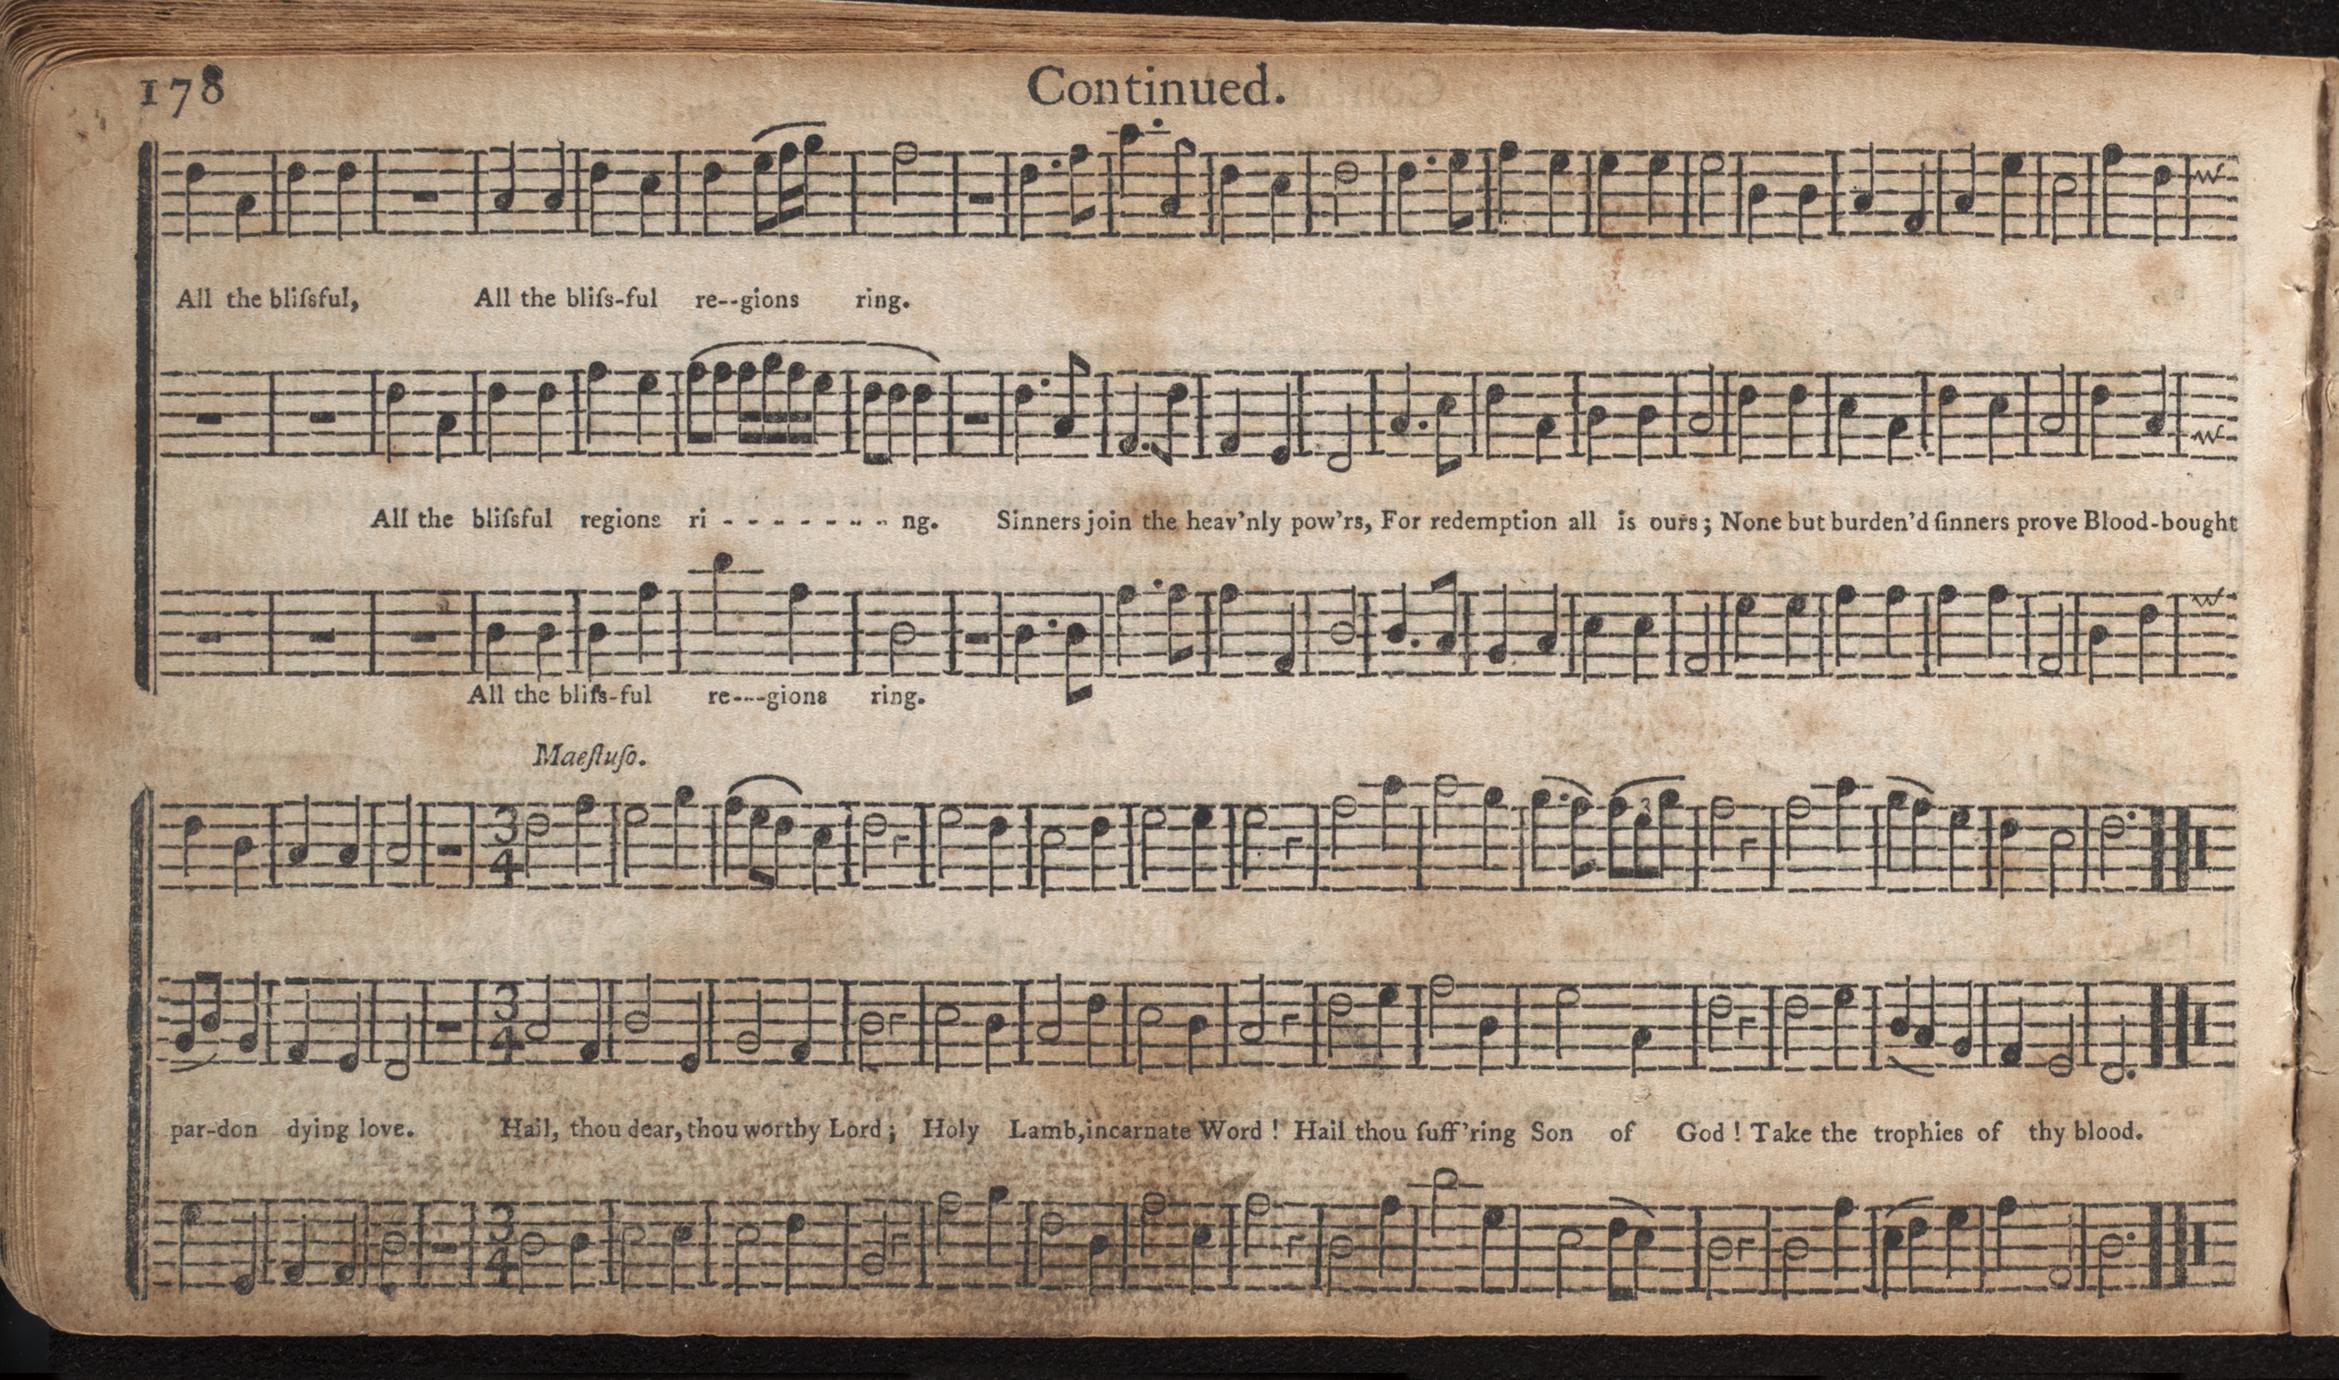 178
Continued.
All the bliſsful, All the bliſs-ful re--gions ring.
All the bliſsful regions ri - - - - - - - - ng. Sinners join the heav'nly pow'rs, For redemption all is ours; None but burden'd ſinners prove Blood-bought
All the bliſs-ful re---gions ring.
Maeſtuſo.
3
4
3
3
4
par-don dying love. Hail, thou dear, thou worthy Lord; Holy Lamb, incarnate Word! Hail thou ſuff'ring Son of God! Take the trophies of thy blood.
3
4